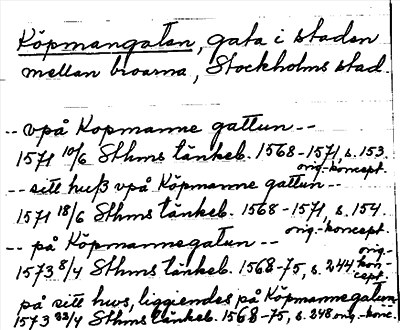 Köpmangatan, gata i staden
mellan broarna, Stockholms stad.
-- vpå Kopmanne gattun --
1571 10/6 Sthms tänkeb. 1568-1571, s. 153.
orig.-koncept.
-- sitt huß vpå Köpmanne gattun --
1571 18/6 Sthms tänkeb. 1568-1571, s. 154.
orig.-koncept.
-- på Köpmannegatun --
1573 8/4 Sthms tänkeb. 1568-75, s. 244 orig.-koncept.
på sitt hws, liggiendes på Köpmannegatun.
1573 22/4 Sthms tänkeb. 1568-75, s. 248 orig.-konc.